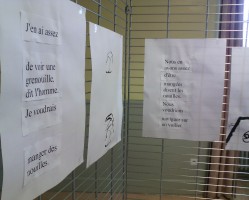 J'en ai assez
de voir une
grenouille,
dit l'homme.
Je voudrais
manger des
nouilles.
Nous en
avons assez
d'être
mangées
disent les
nouilles.
Nous
voudrions